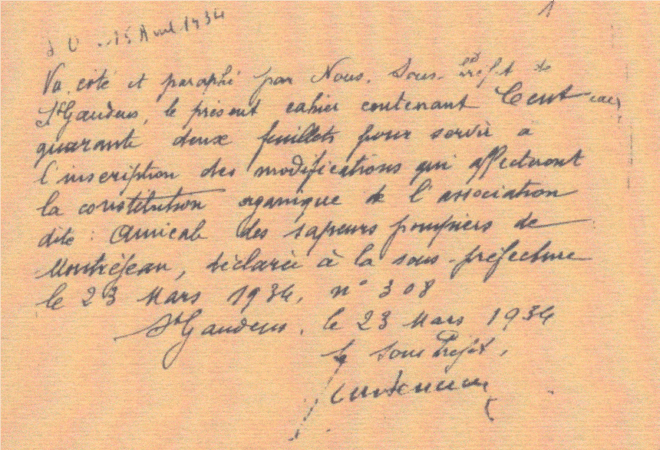 1
J.O. 15 Avril 1934
Vu, coté et paraphé par Nous, Sous-Préfet de
St Gaudens, le présent cahier contenant Cent
quarante deux feuillets pour servir à
l'inscription des modifications qui affecteront
la constitution organique de l'association
dite : Amicale des sapeurs pompiers de
Montréjeau, déclarée à la sous-préfecture
le 23 Mars 1934, n° 308
St Gaudens, le 23 Mars 1934
le Sous Préfet,